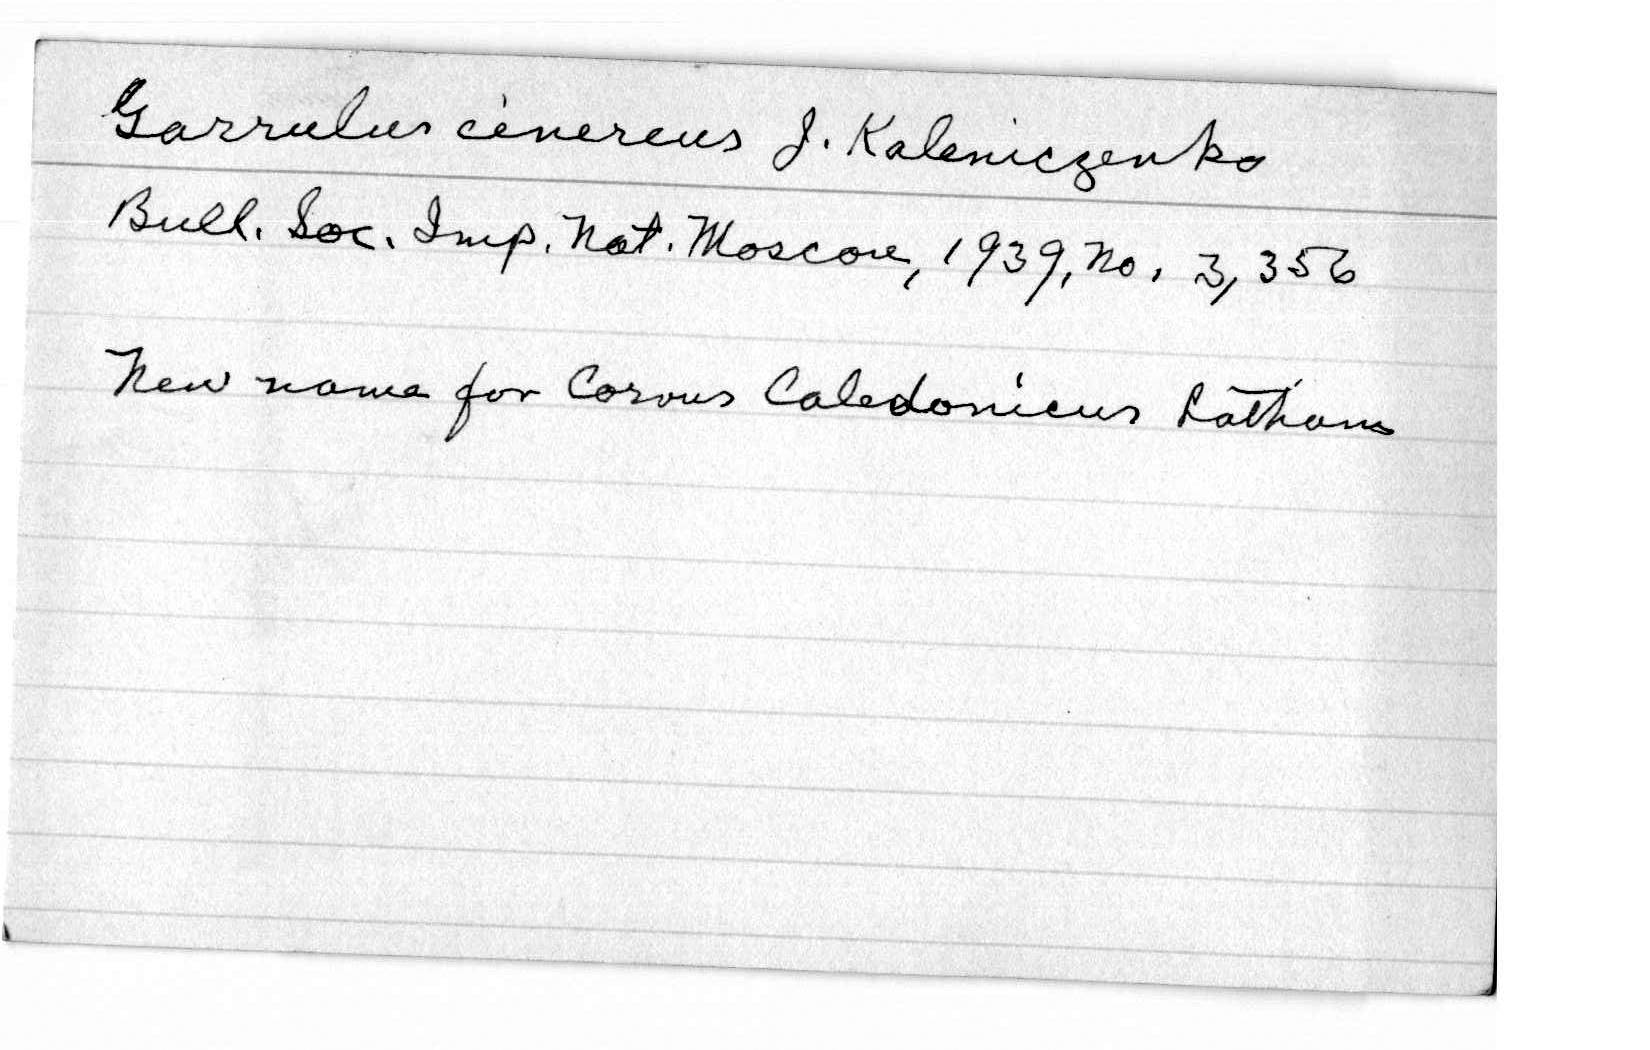 Garrulus cinereus J. Kaleniczenko
Bull. Soc. Imp. Nat. Moscou, 1939, No. 3, 356
New name for Corvus Caledonicus Latham